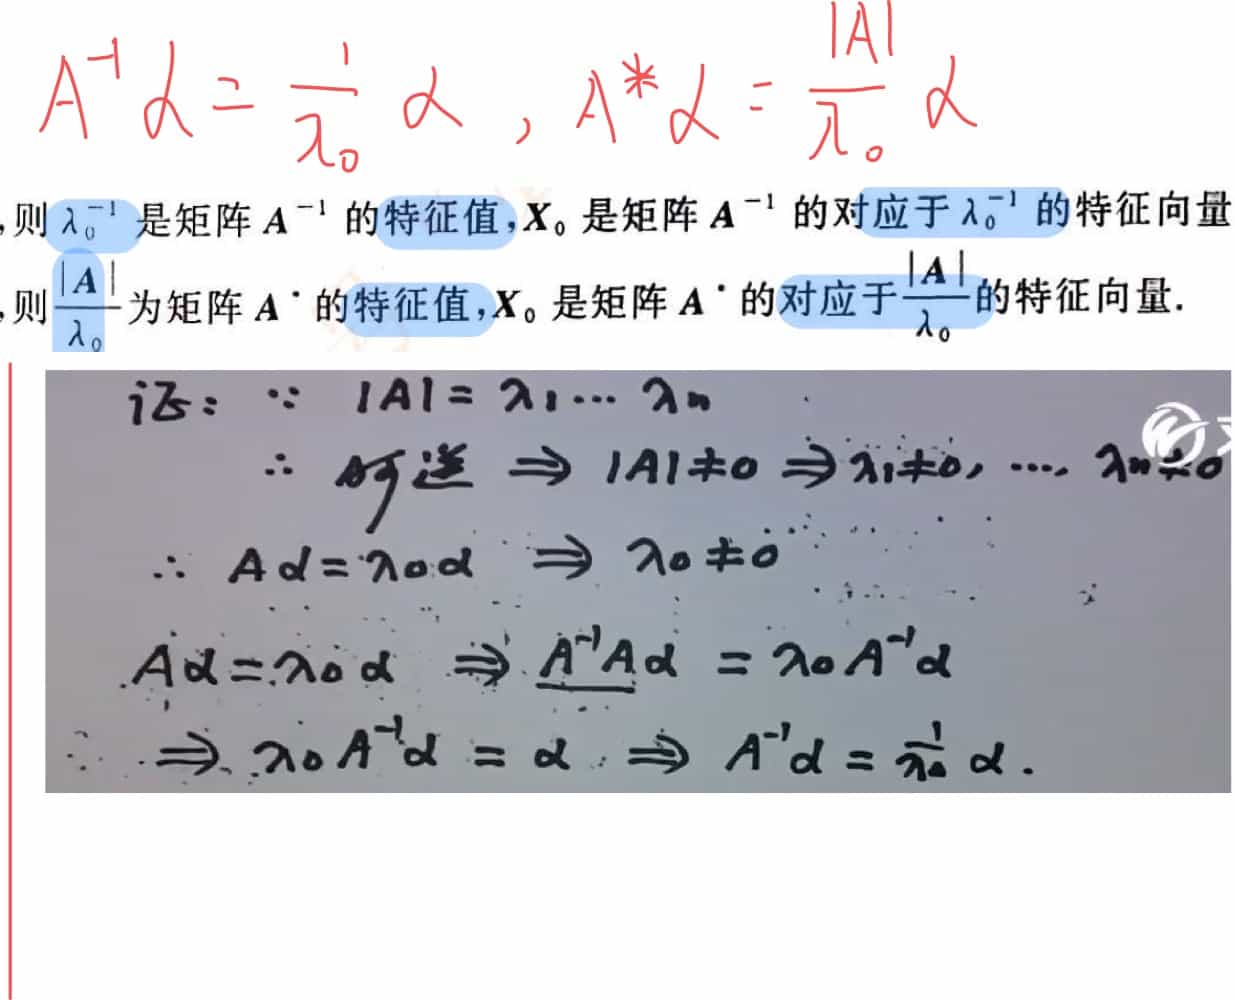 A⁻¹α = 1/λ₀ α , A*α = |A|/λ₀ α
,则 λ₀⁻¹ 是矩阵 A⁻¹ 的特征值,X₀ 是矩阵 A⁻¹ 的对应于 λ₀⁻¹ 的特征向量
,则 |A|/λ₀ 为矩阵 A* 的特征值,X₀ 是矩阵 A* 的对应于 |A|/λ₀ 的特征向量.
证: ∵ |A| = λ₁⋯ λn
∴ A可逆 ⇒ |A|≠0 ⇒ λ₁≠0, ⋯, λn≠0
∴ Aα = λ₀α ⇒ λ₀≠0
Aα = λ₀α ⇒ A⁻¹Aα = λ₀A⁻¹α
⇒ λ₀A⁻¹α = α ⇒ A⁻¹α = 1/λ₀ α.